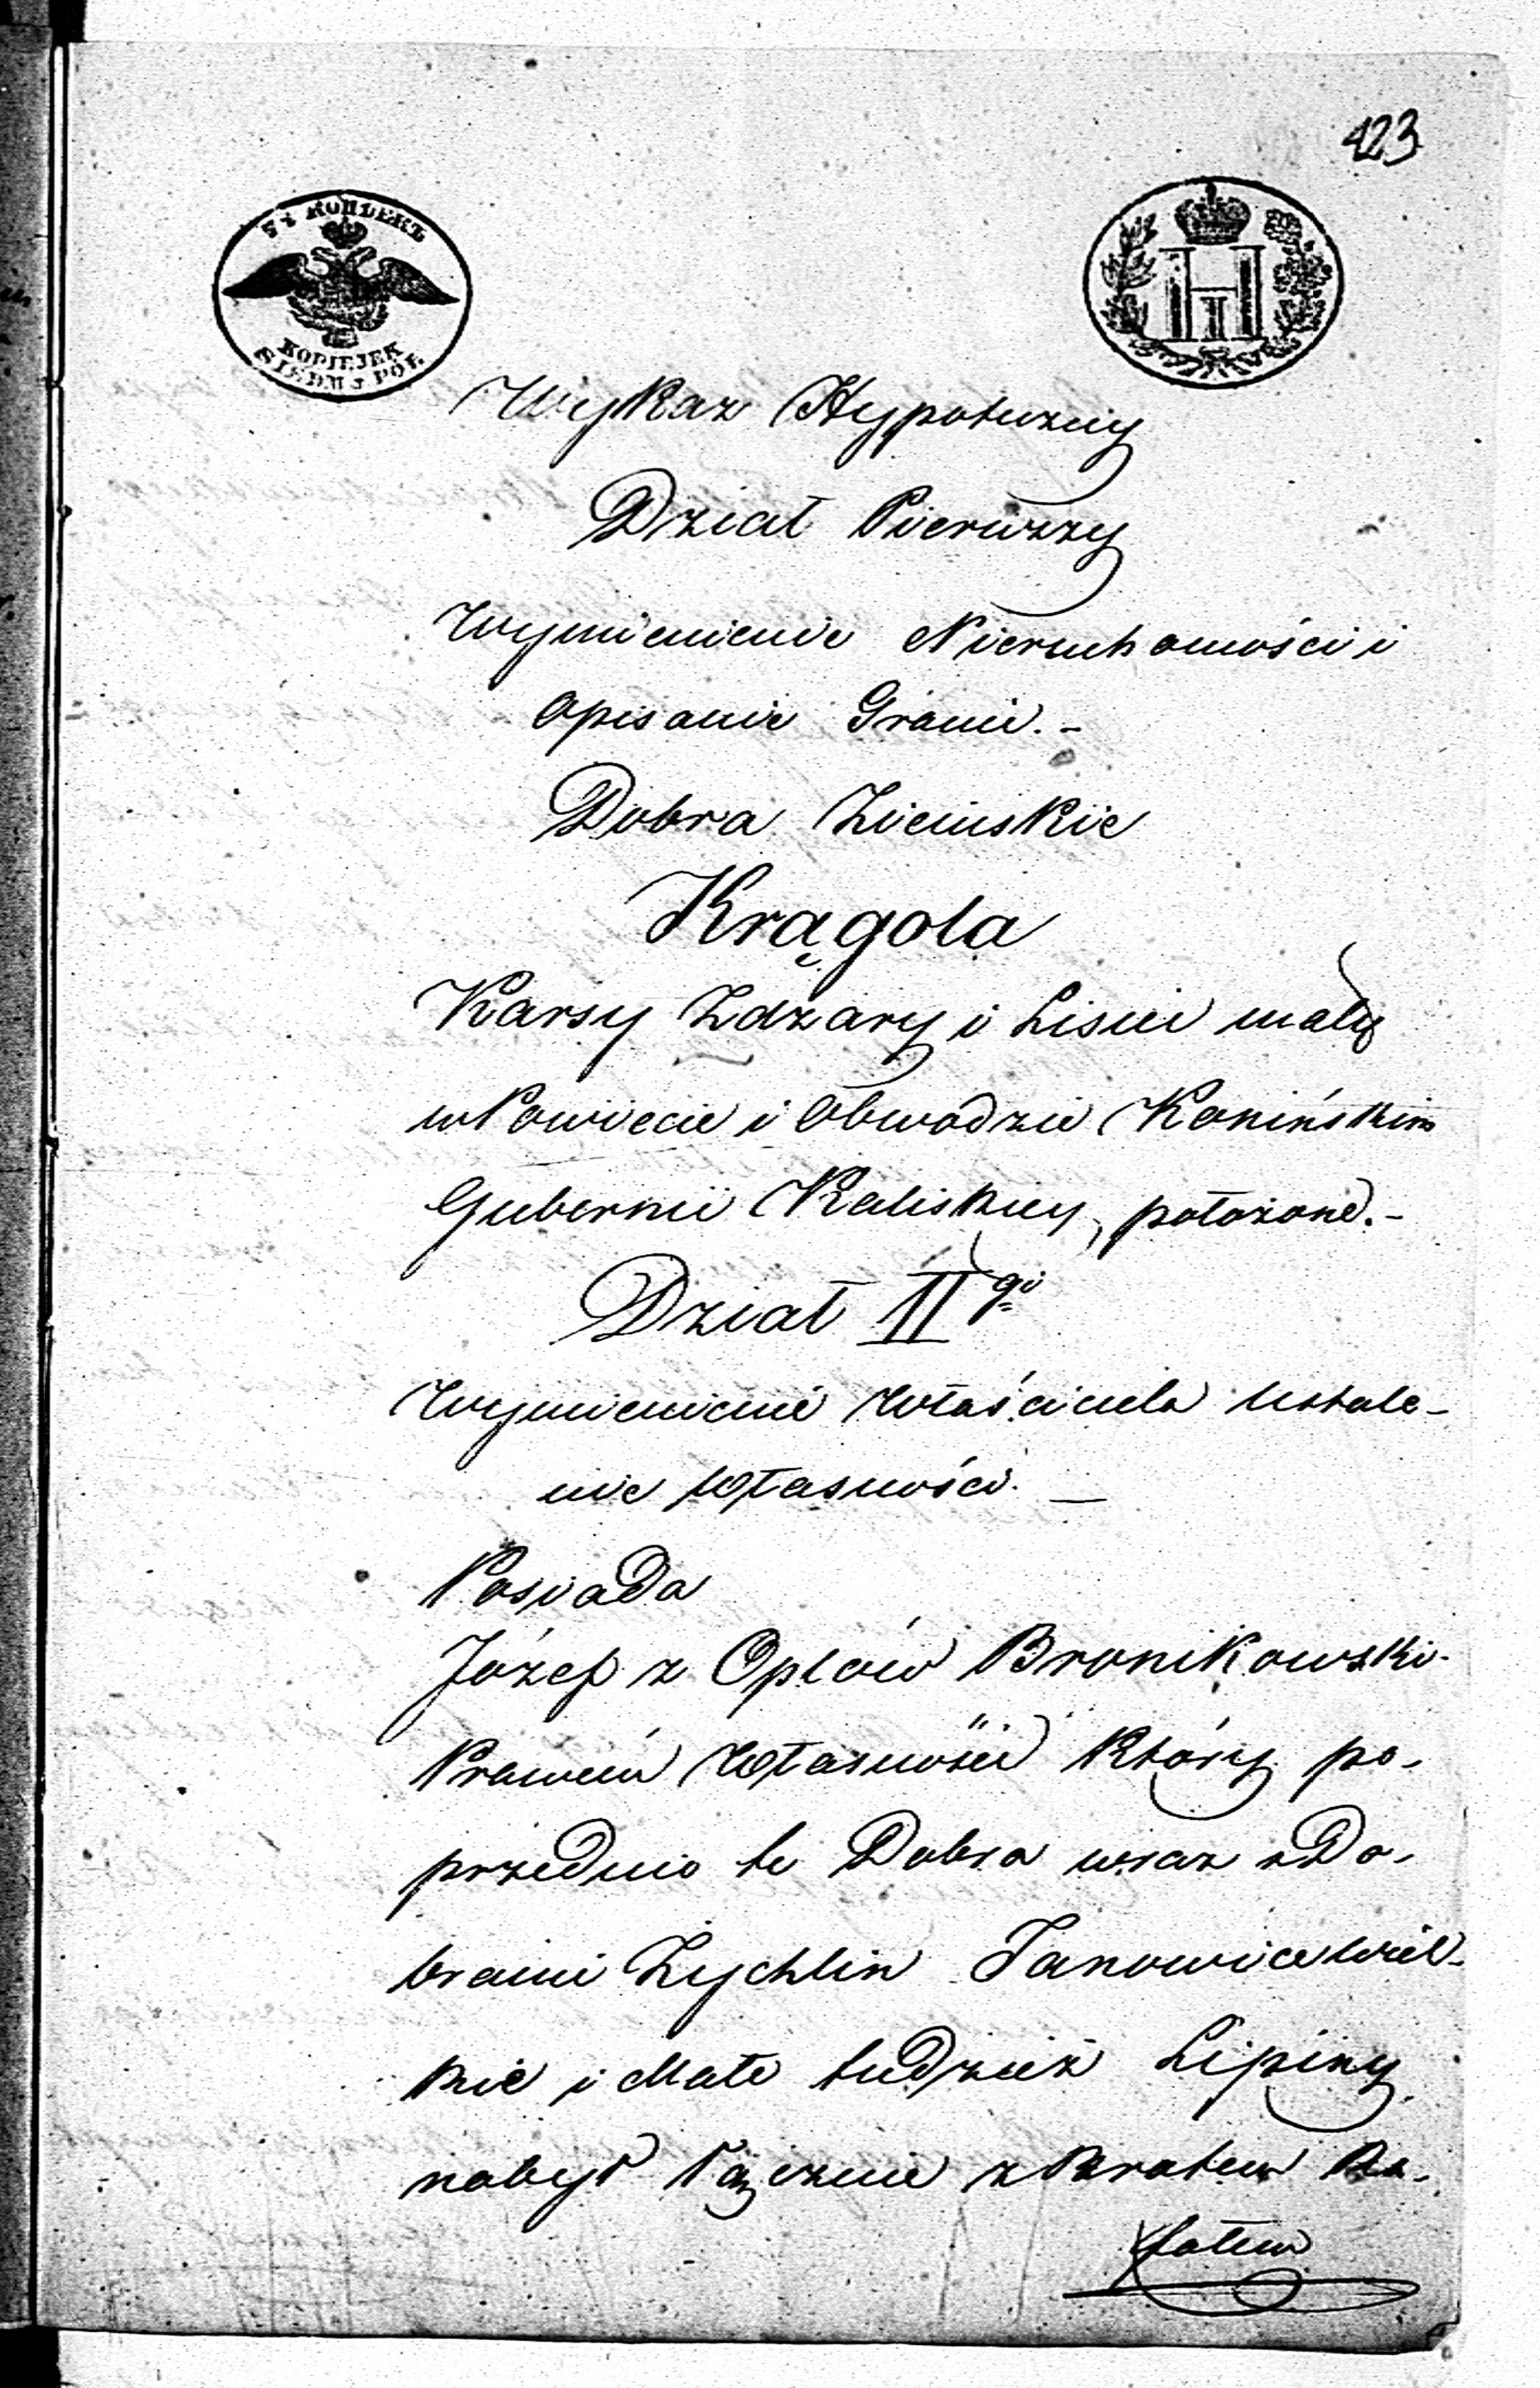 423
7½ КОПѢЕКЪ
KOPIEJEK
SIEDM i PÓŁ
H I
Wykaz Hypoteczny
Dział Pierwszy
Wymienienie Nieruchomości i
Opisanie Granic. -
Dobra Ziemskie
Krągola
Karsy Zdzary i Lisiec mały
w Powiecie i Obwodzie Konińskim
Gubernii Kaliskiey, położone. -
Dział II gi
Wymienienie Właściciela Ustale-
nie Własności. —
Posiada
Józef z Oplów Bronikowski.
Prawem Własności Który po-
przednio te Dobra wraz z Do-
brami Zychlin Janowice Wiel-
kie i Małe tudzież Lipiny
nabył łącznie z Bratem Ra-
fałem